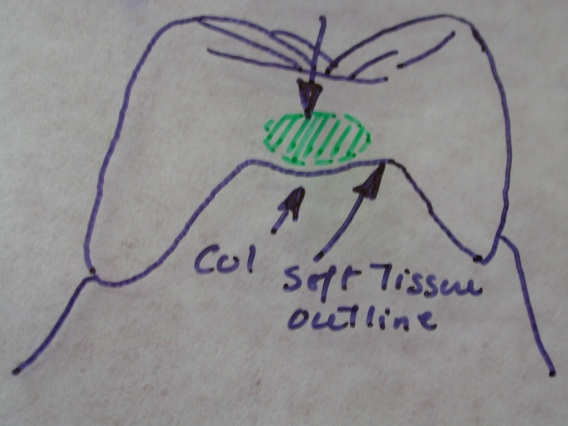 Col
Soft Tissue
outline